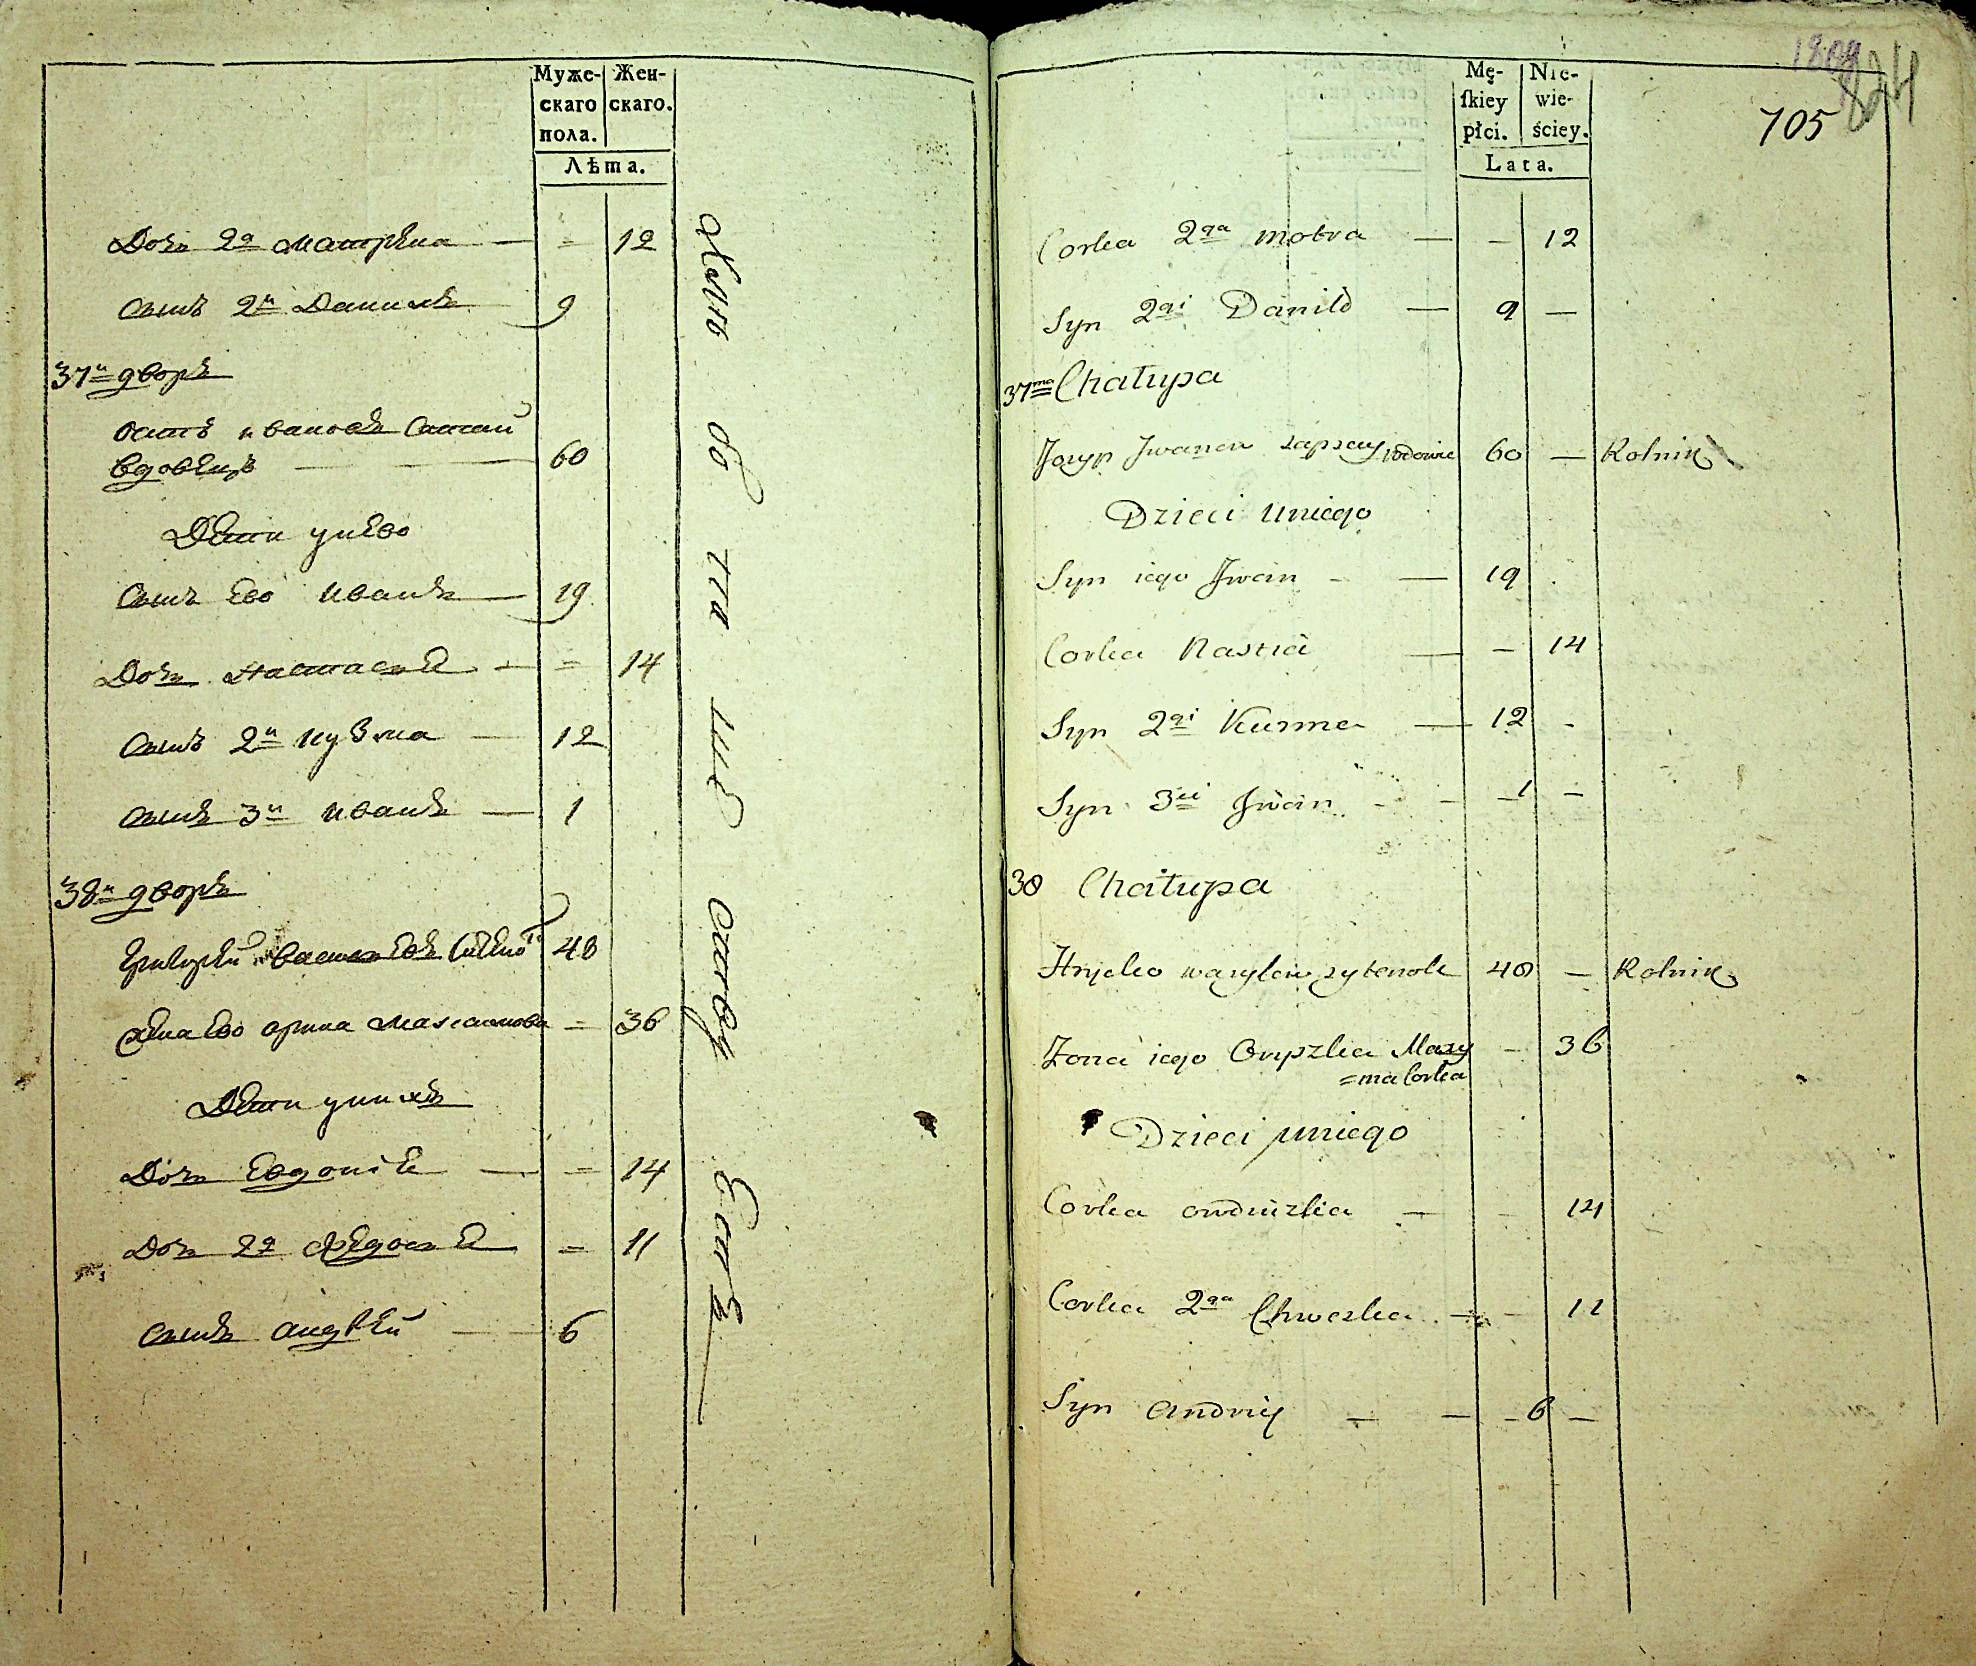 Муже- Жен-
скаго скаго.
пола.
Лѣта.
Дочь 2я Матрена — = 12
сынъ 2й Данило — 9
37й дворъ
вдовецъ — 60
Дети у нево
сынъ Ево Иванъ — 19
Дочь Настасья — = 14
сынъ 2й Кузма — 12
сынъ 3й Иванъ — 1
38й дворъ
Григорей Васильевъ 48
Жена Ево Орина Максимова = 36
Дети у нихъ
Дочь Евдокія — = 14
Дочь 2я Федосья = 11
сынъ Андрей — 6
1809
824
705
Mę- Nie-
ſkiey wie-
płci. ściey.
Lata.
Corka 2ga Motra — — 12
Syn 2gi Daniło — 9 —
37ma Chałupa
Jozyp Iwanow wdowiec 60 — Rolnik
Dzieci uniego
Syn iego Iwan — 19
Corka Nastia — — 14
Syn 2gi Kuzma — 12 -
Syn 3ci Iwan - - 1 —
38 Chałupa
Hrycko Wasylow 48 — Rolnik
Zona iego Oryszka Maxy — 36
=ma Corka
Dzieci uniego
Corka Owduszka — - 14
Corka 2ga Chweska — - 11
Syn Andriy — — 6 —